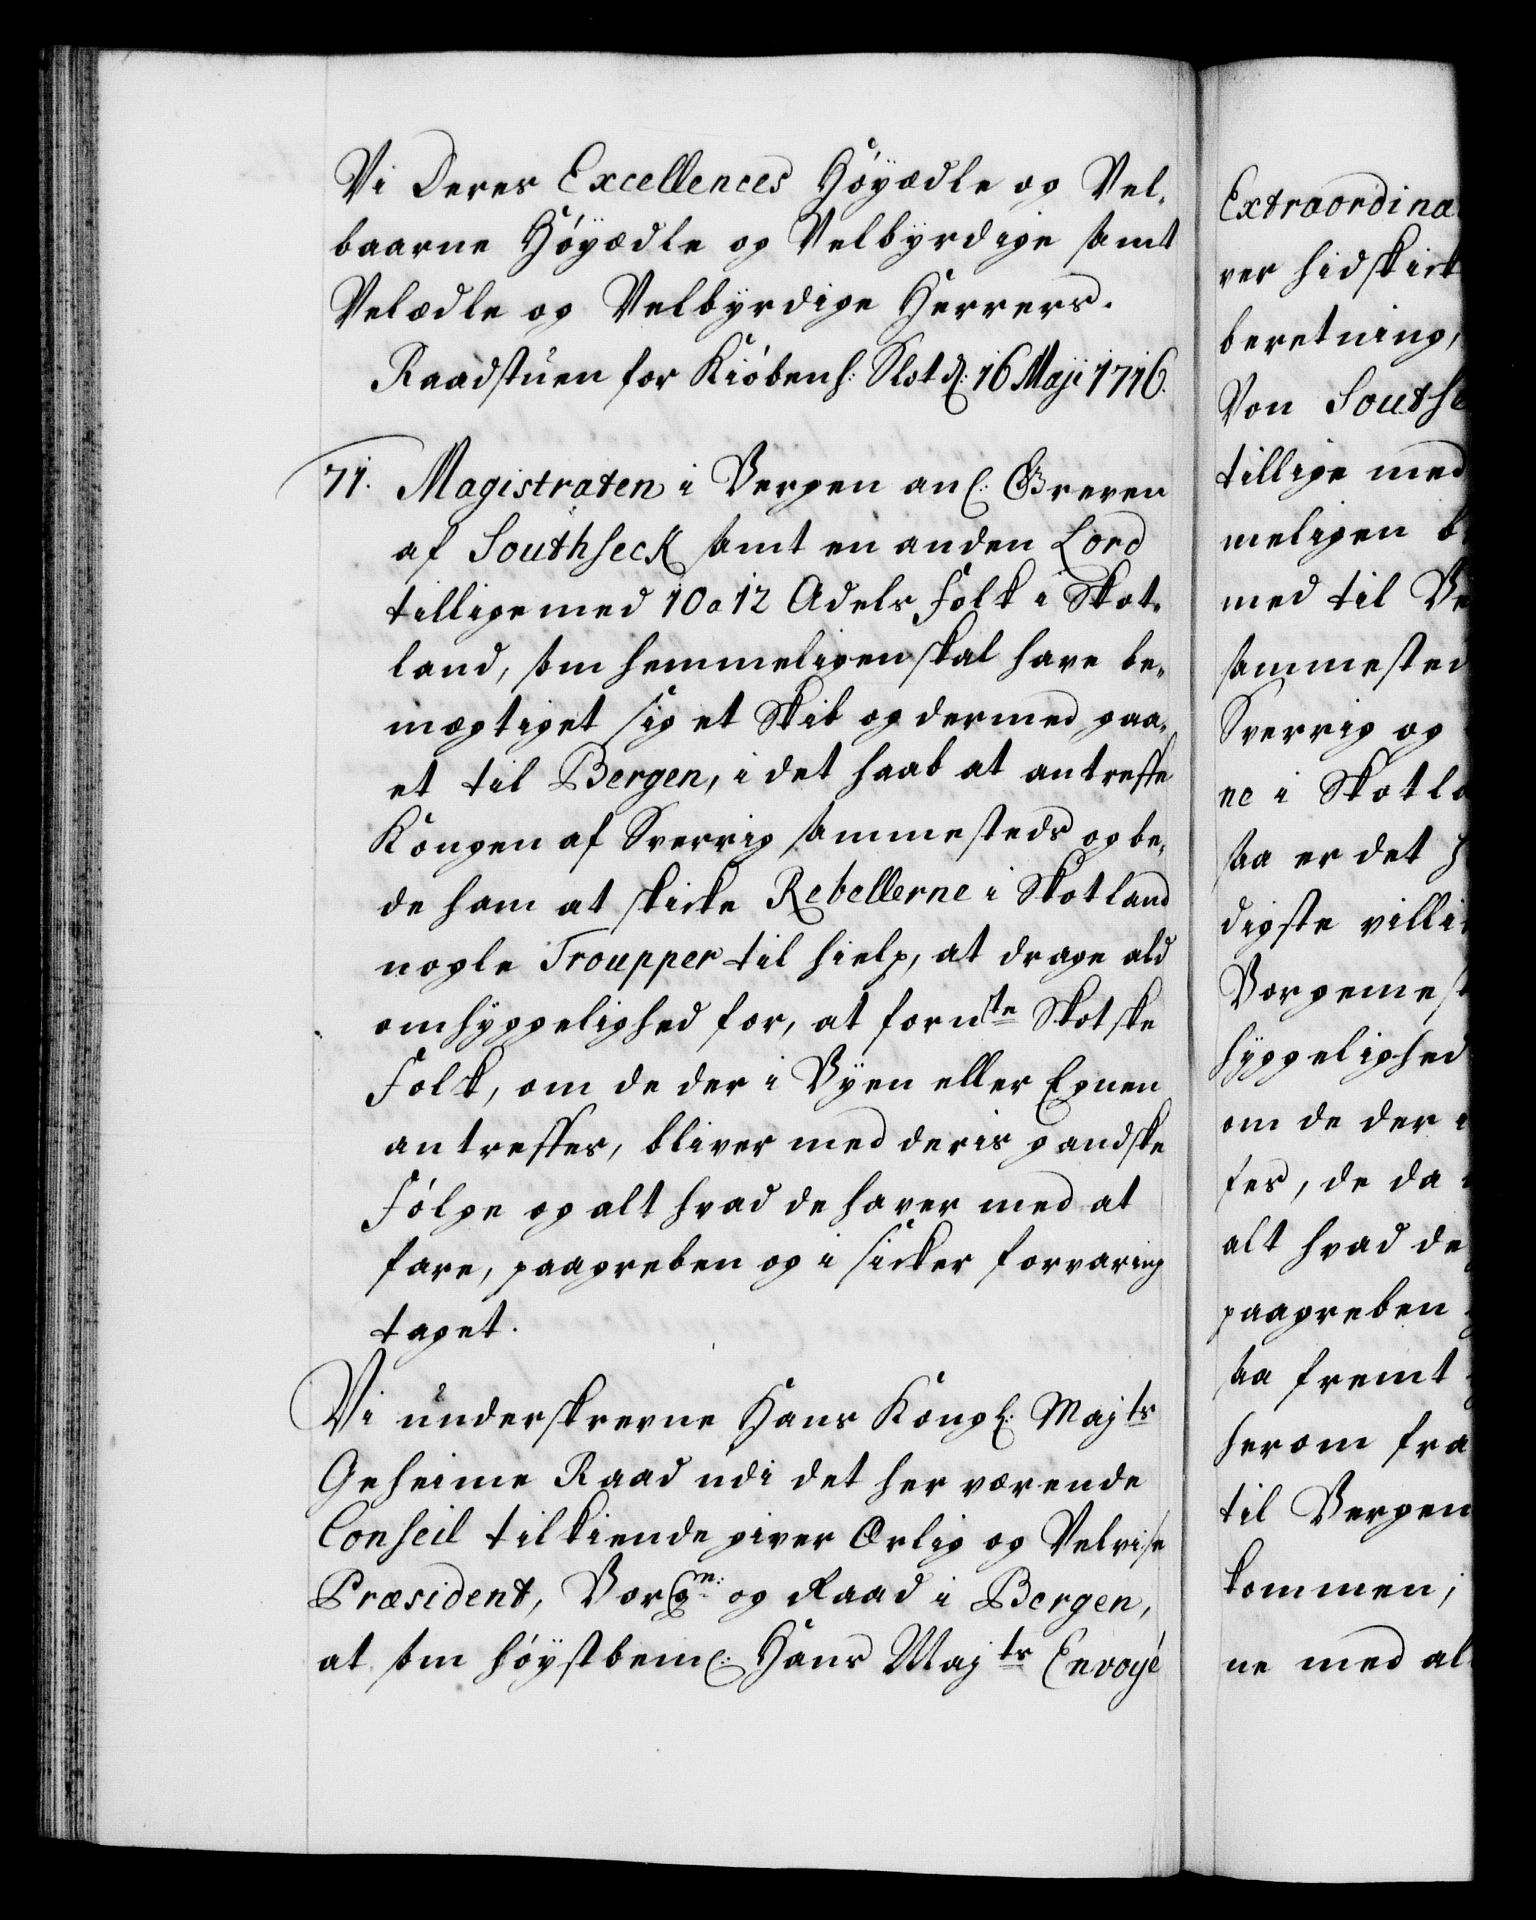 Vi Deres Excellences Høyædle og Vel-
baarne Høyædle og Velbyrdige samt
Velædle og Velbyrdige Herrers.
Raadstuen for Kiøbenh: Slot d: 16 Maji 1716.
71. Magistraten i Bergen anl: Greven
af Southseck samt en anden Lord
tillige med 10 a 12 Adels Folk i Skot-
land, som hemmeligen skal have be-
mægtiget sig et Skib og dermed gaa-
et til Bergen, i det haab at antreffe
Kongen af Sverrig sammesteds og be-
de ham at skicke Rebellerne i Skotland
nogle Troupper til hielp, at drage ald
omhyggelighed for, at fornte Skotske
Folk, om de der i Byen eller Egnen
antreffes, bliver med deris gandske
Følge og alt hvad de haver med at
fare, paagreben og i sicker forvaring
taget.
Vi underskrevne Hans Kongl: Majts
Geheime Raad udi det her værende
Conseil tilkiende giver Ærlig og Velvise
Præsident, Borgm: og Raad i Bergen,
at som høystbeml: Hans Majts Envoyé
Extraordina
ver hidskick
beretning,
Von Southse
tillige med
meligen b
med til Be
sammested
Sverrig og
ne i Skotla
saa er det H
digste villi
Borgemest
hyggelighed
om de der i
fes, de da
alt hvad de
paagreben
saa fremt
herom fra
til Bergen
kommen,
ne med al